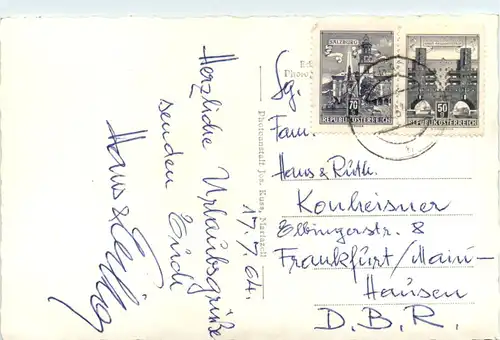 Herzliche Urlaubsgrüße
senden Euch
Hans &
17.7.64.
Photoanstalt Jos. Kuss, Mariazell
SALZBURG
70
REPUBLIK ÖSTERREICH
50
REPUBLIK ÖSTERREICH
Fam.
Hans & Ruth.
Konheisner
Elbingerstr. 8
Frankfurt/Main-
Hausen
D.B.R.